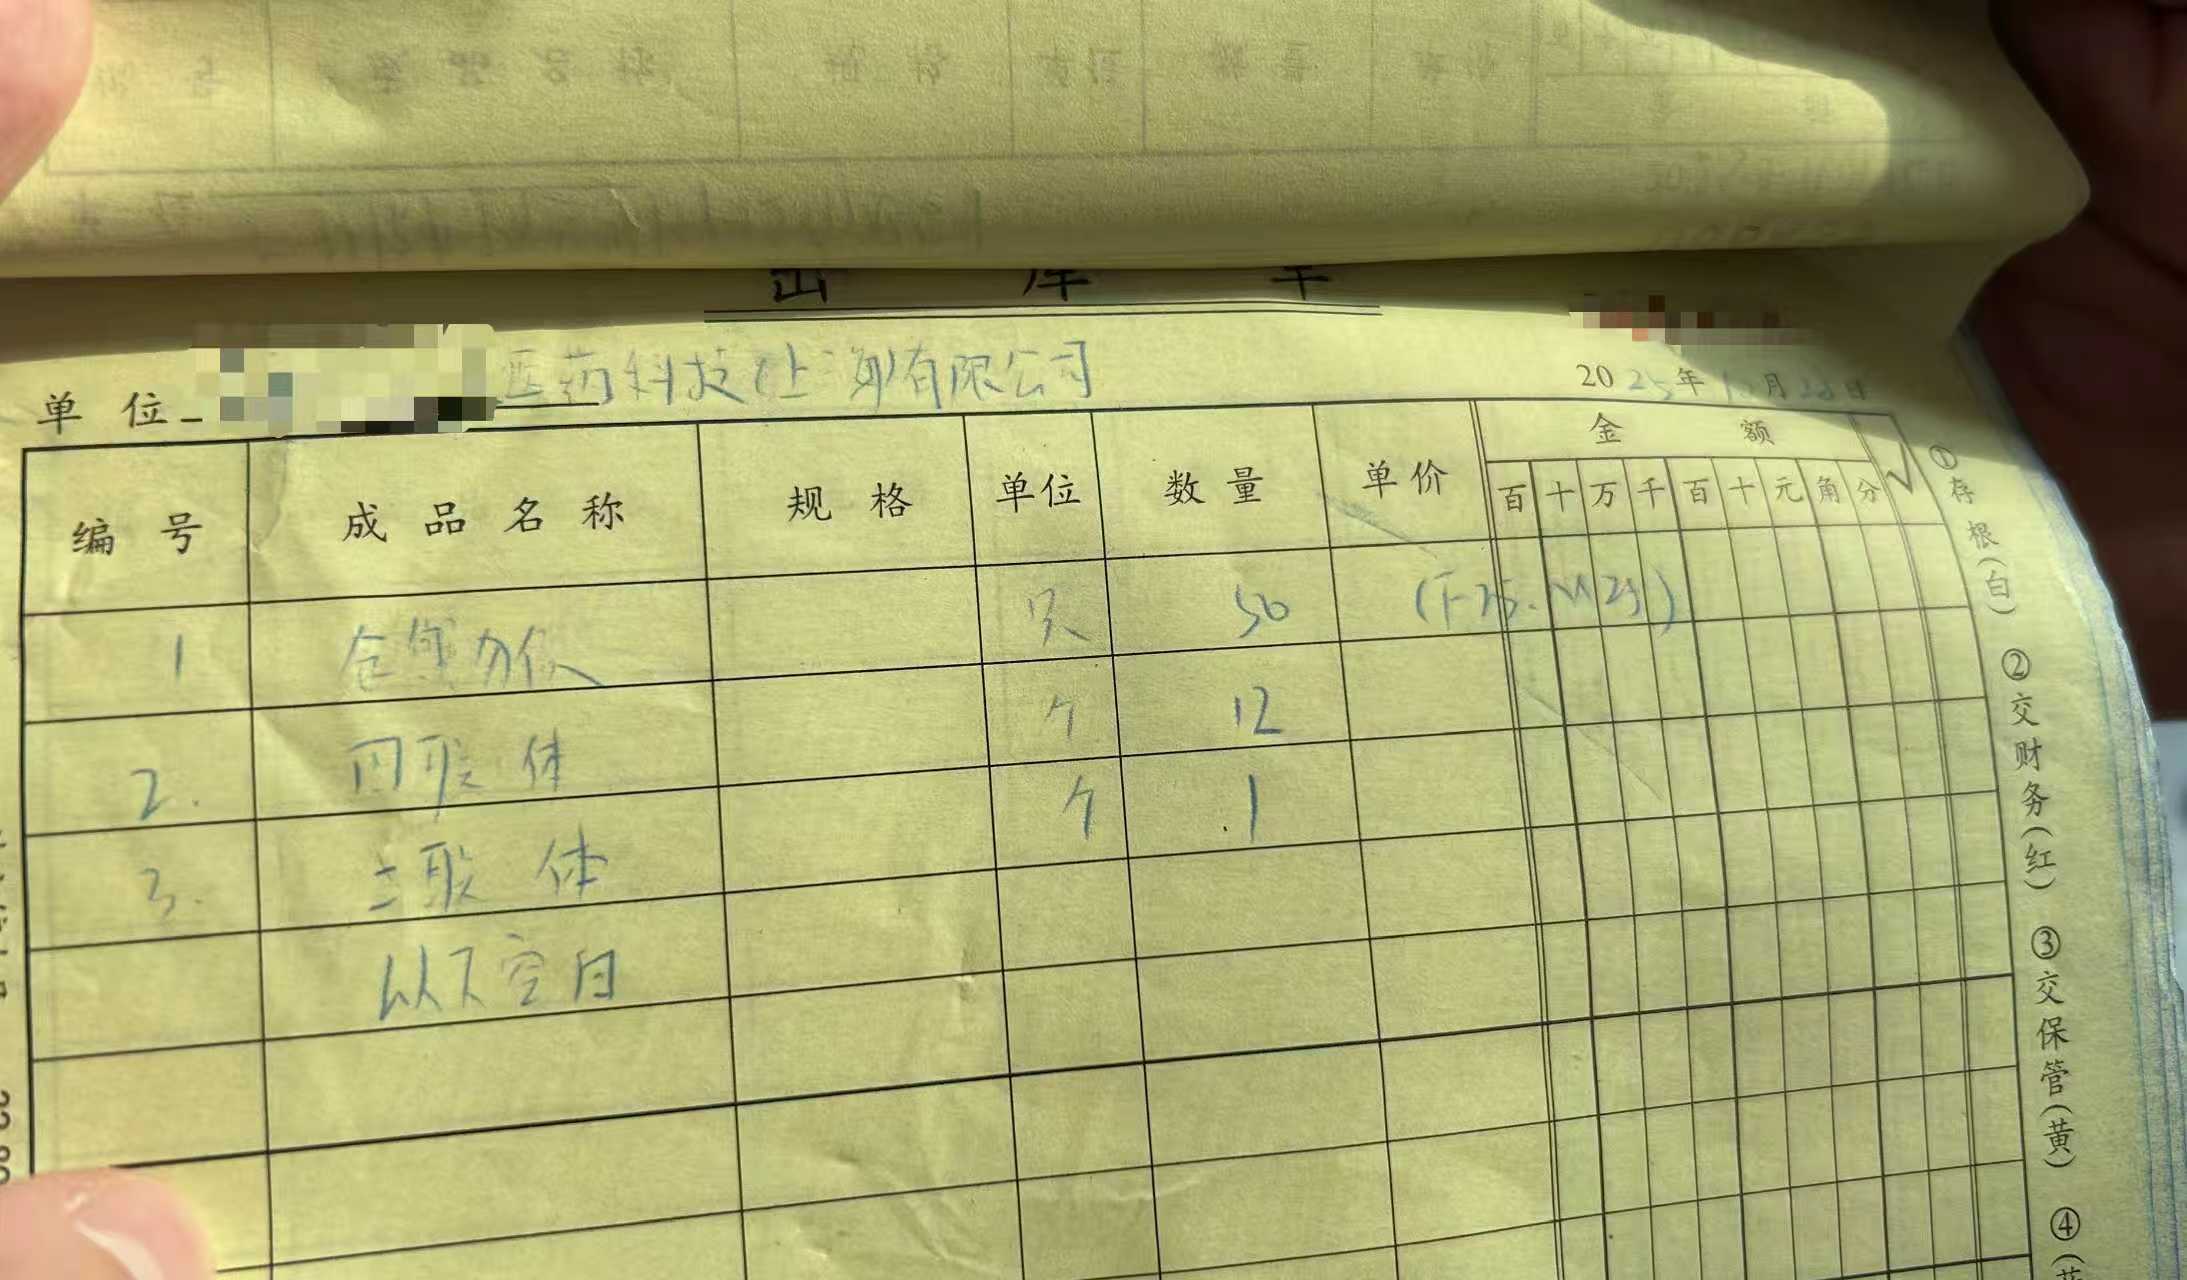 出库单
单位 医药科技(上海)有限公司 2025年 月28日
编号 成品名称 规格 单位 数量 单价 金额 百十万千百十元角分 √
1 只 50 (F25. M25)
2. 四联体 个 12
3. 三联体 个 1
以下空白
①存根(白) ②交财务(红) ③交保管(黄) ④(